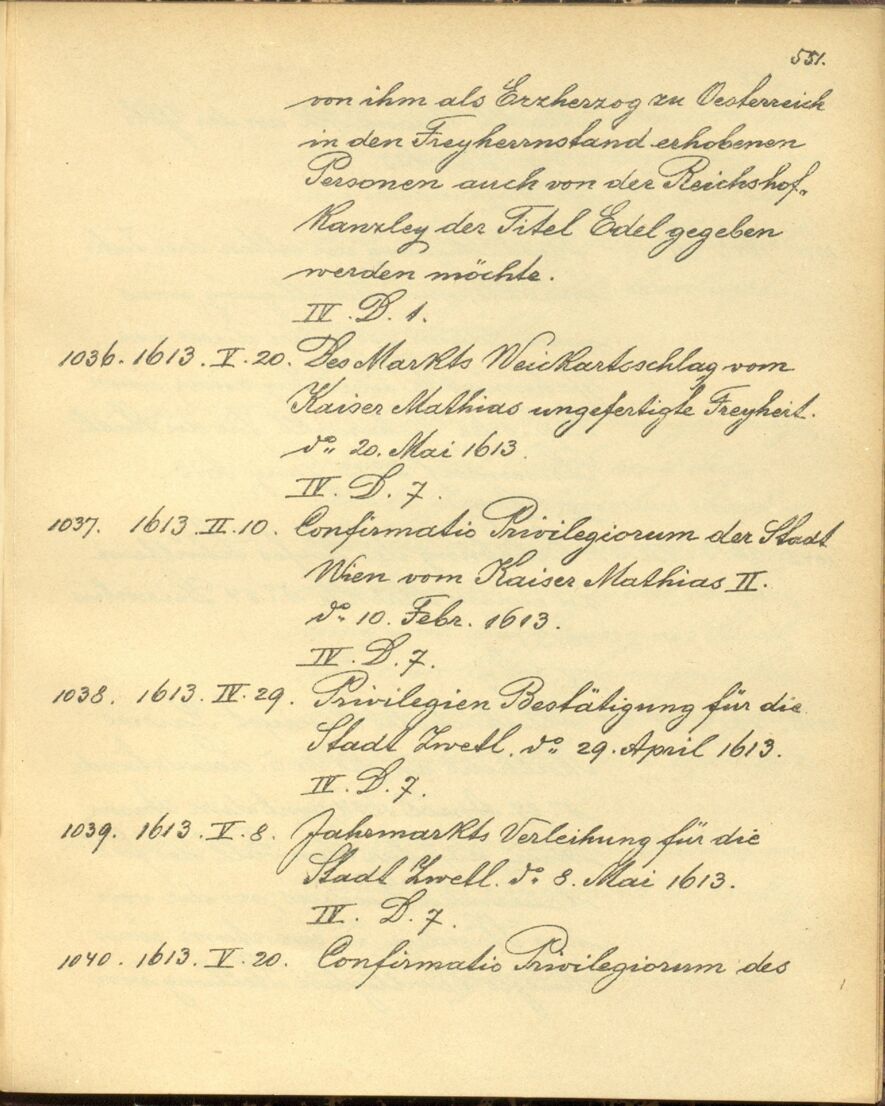 551.
von ihm als Erzherzog zu Oesterreich
in den Freyherrnstand erhobenen
Personen auch von der Reichshof-
kanzley der Titel Edel gegeben
werden möchte.
IV. D. 1.
1036. 1613. V. 20. Des Markts Weickartsschlag vom
Kaiser Mathias ungefertigte Freyheit.
do 20. Mai 1613.
IV. D. 7.
1037. 1613. II. 10. Confirmatio Privilegiorum der Stadt
Wien vom Kaiser Mathias II.
do 10. Febr. 1613.
IV. D. 7.
1038. 1613. IV. 29. Privilegien Bestätigung für die
Stadt Zwetl. do 29. April 1613.
IV. D. 7.
1039. 1613. V. 8. Jahrmarkts Verleihung für die
Stadt Zwetl. do 8. Mai 1613.
IV. D. 7.
1040. 1613. V. 20. Confirmatio Privilegiorum des